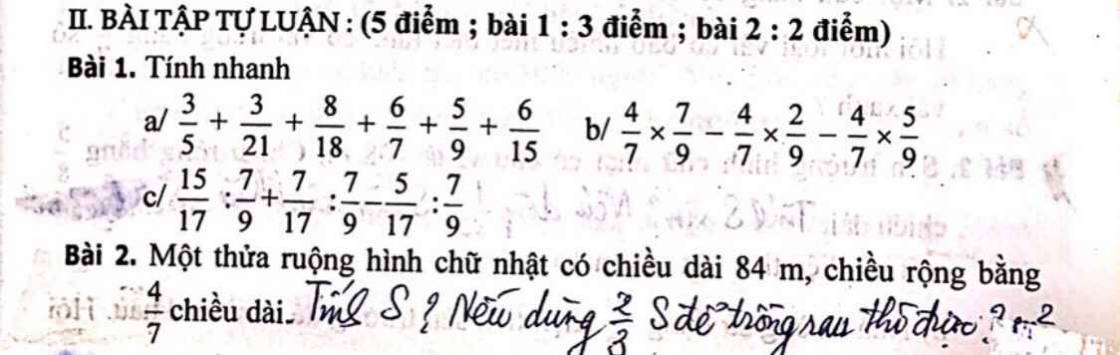 II. BÀI TẬP TỰ LUẬN : (5 điểm ; bài 1 : 3 điểm ; bài 2 : 2 điểm)
Bài 1. Tính nhanh
a/ 3/5 + 3/21 + 8/18 + 6/7 + 5/9 + 6/15 b/ 4/7 × 7/9 − 4/7 × 2/9 − 4/7 × 5/9
c/ 15/17 : 7/9 + 7/17 : 7/9 − 5/17 : 7/9
Bài 2. Một thửa ruộng hình chữ nhật có chiều dài 84 m, chiều rộng bằng
4/7 chiều dài. Tính S ? Nếu dùng 2/3 S để trồng rau thì được ? m²